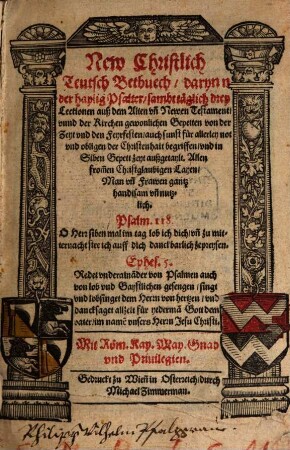 New Christlich
Teutsch Bethuech / darynn
der haylig Psalter / sambt täglich drey
Lectionen auß dem Alten vñ Newen Testament
vnnd der Kirchen gewonlichen Gepeten von der
Zeyt vnd den Feyrfesten / auch sunst für allerley not
vnd obligen der Christenhait begriffen / vnd in
Siben Gepett zeyt außgetaylt, Allen
from̃en Christglaubigen Layen /
Man vñ Frawen gantz
handtsam vñ nutz-
lich.
Psalm. 118.
O Herr siben mal im tag lob ich dich / vñ zu mit-
ternacht stee ich auff dich danckbarlich zepreysen.
Ephes. 5.
Redet vndereinãder von Psalmen auch
von lob vnd Gaystlichen gesengen / singt
vnd lobsinget dem Herrn von hertzen / vnd
dancksaget allzeit für yedermã Got dem
vater / im namẽ vnsers Herrn Jesu Christi.
Mit Röm. Kay. May. Gnad
vnd Priuilegien.
Gedruckt zu Wien in Osterreich / durch
Michael Zimmerman.
Philipp Wilhelm Pfaltzgrau